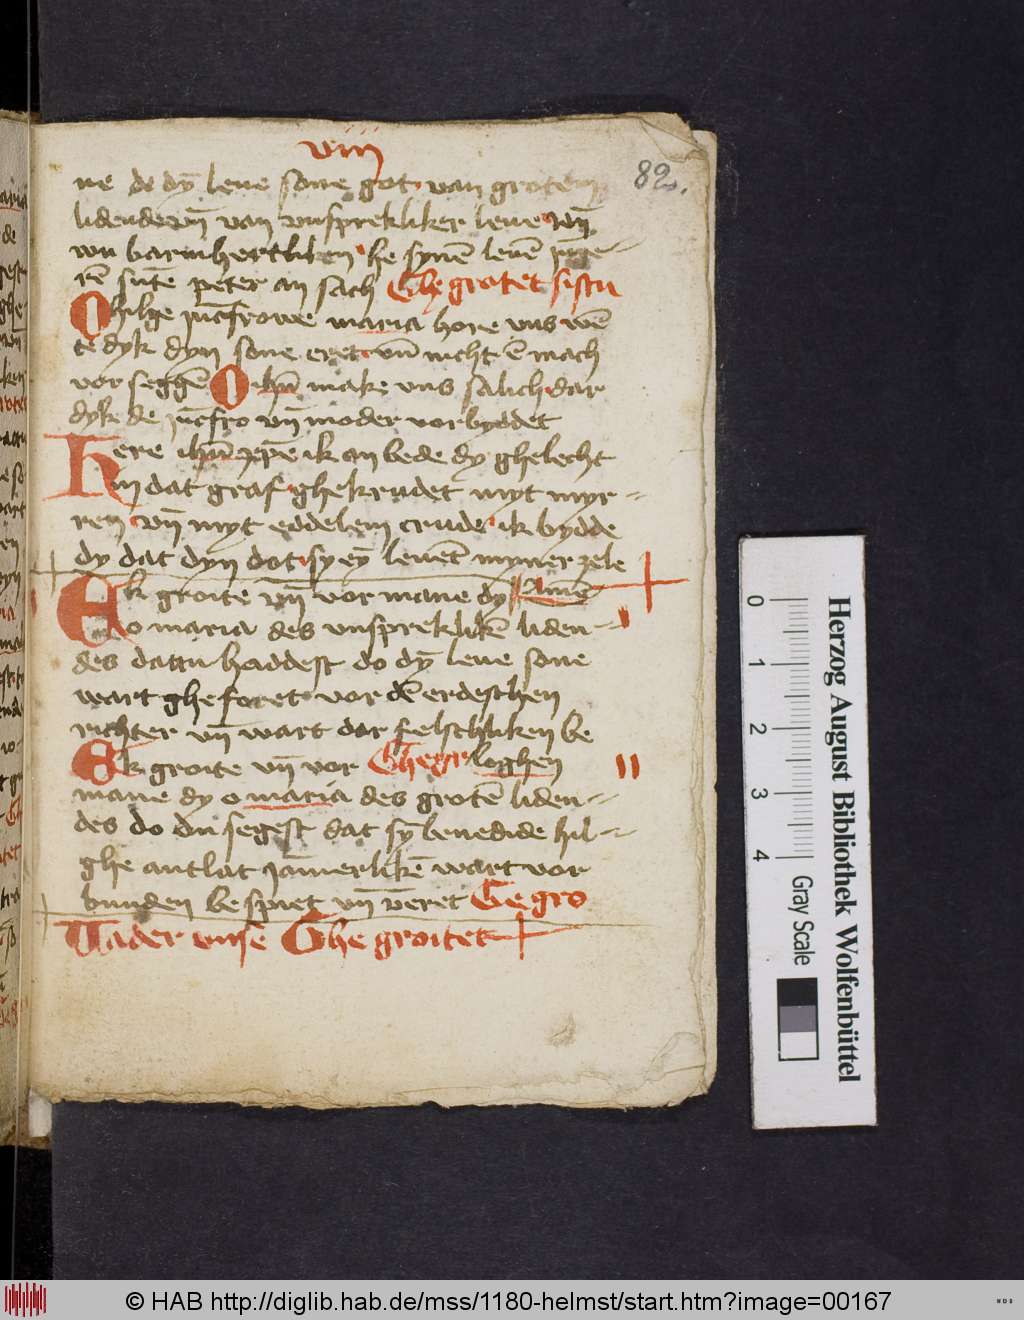 viij
82.
ne de dȳ leue sone got van groten
lidende vn̄ van vnsprekliker leue vn̄
wu barmhertliken he synē leuē
sūte peter an sach Ghe grotet sistu
O hilge jūcfrowe maria hore vns wē
te dyk dyn sone eret vn̄ nicht ē mach
vor seghē O ihū make vns salich dar
dyk de jūcfro vn̄ moder vor byddet
Here ihū xp̄e ik an bede dy ghelecht
in dat graf ghekrudet myt myr-
ren vn̄ myt eddelem crude ik bydde
dy dat dyn dot sy eȳ leuēt myner zele
Ek groite vn̄ vor mane dy Amē
o maria des vnsprekliken liden-
des dattu haddest do dȳ leue sone
wart ghe foret vor dē erdeschen
richter vn̄ wart dar felschliken be
Ek groite vn̄ vor Ghegr loghen
mane dy o maria des grotē liden-
des do du segest dat sȳ benedide hil-
ghe antlat jāmerlikē wart vor
bunden be spiet vn̄ Ge gro
Vader vnse Ghe groitet
Herzog August Bibliothek Wolfenbüttel
0 1 2 3 4 Gray Scale
© HAB http://diglib.hab.de/mss/1180-helmst/start.htm?image=00167